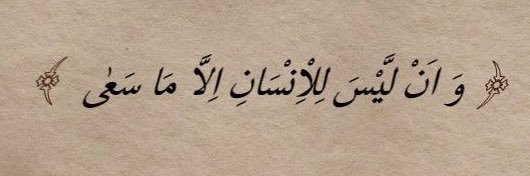 وَ اَنْ لَّيْسَ لِلْاِنْسَانِ اِلَّا مَا سَعٰى